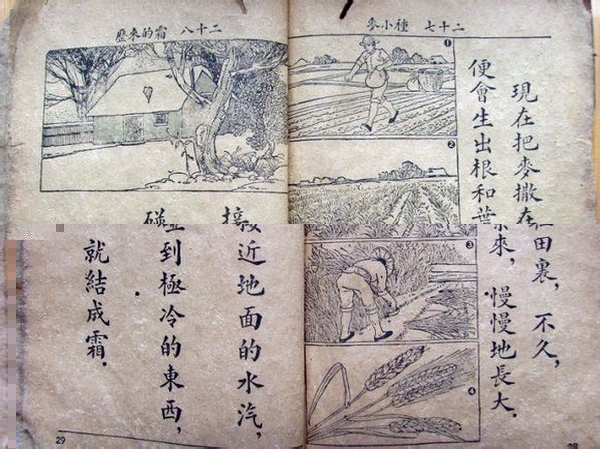 二十七 種小麥
現在把麥撒在田裏, 不久,
便會生出根和葉來, 慢慢地長大.
1
2
3
4
28
二十八 霜的來歷
接近地面的水汽,
碰到極冷的東西,
就結成霜.
29